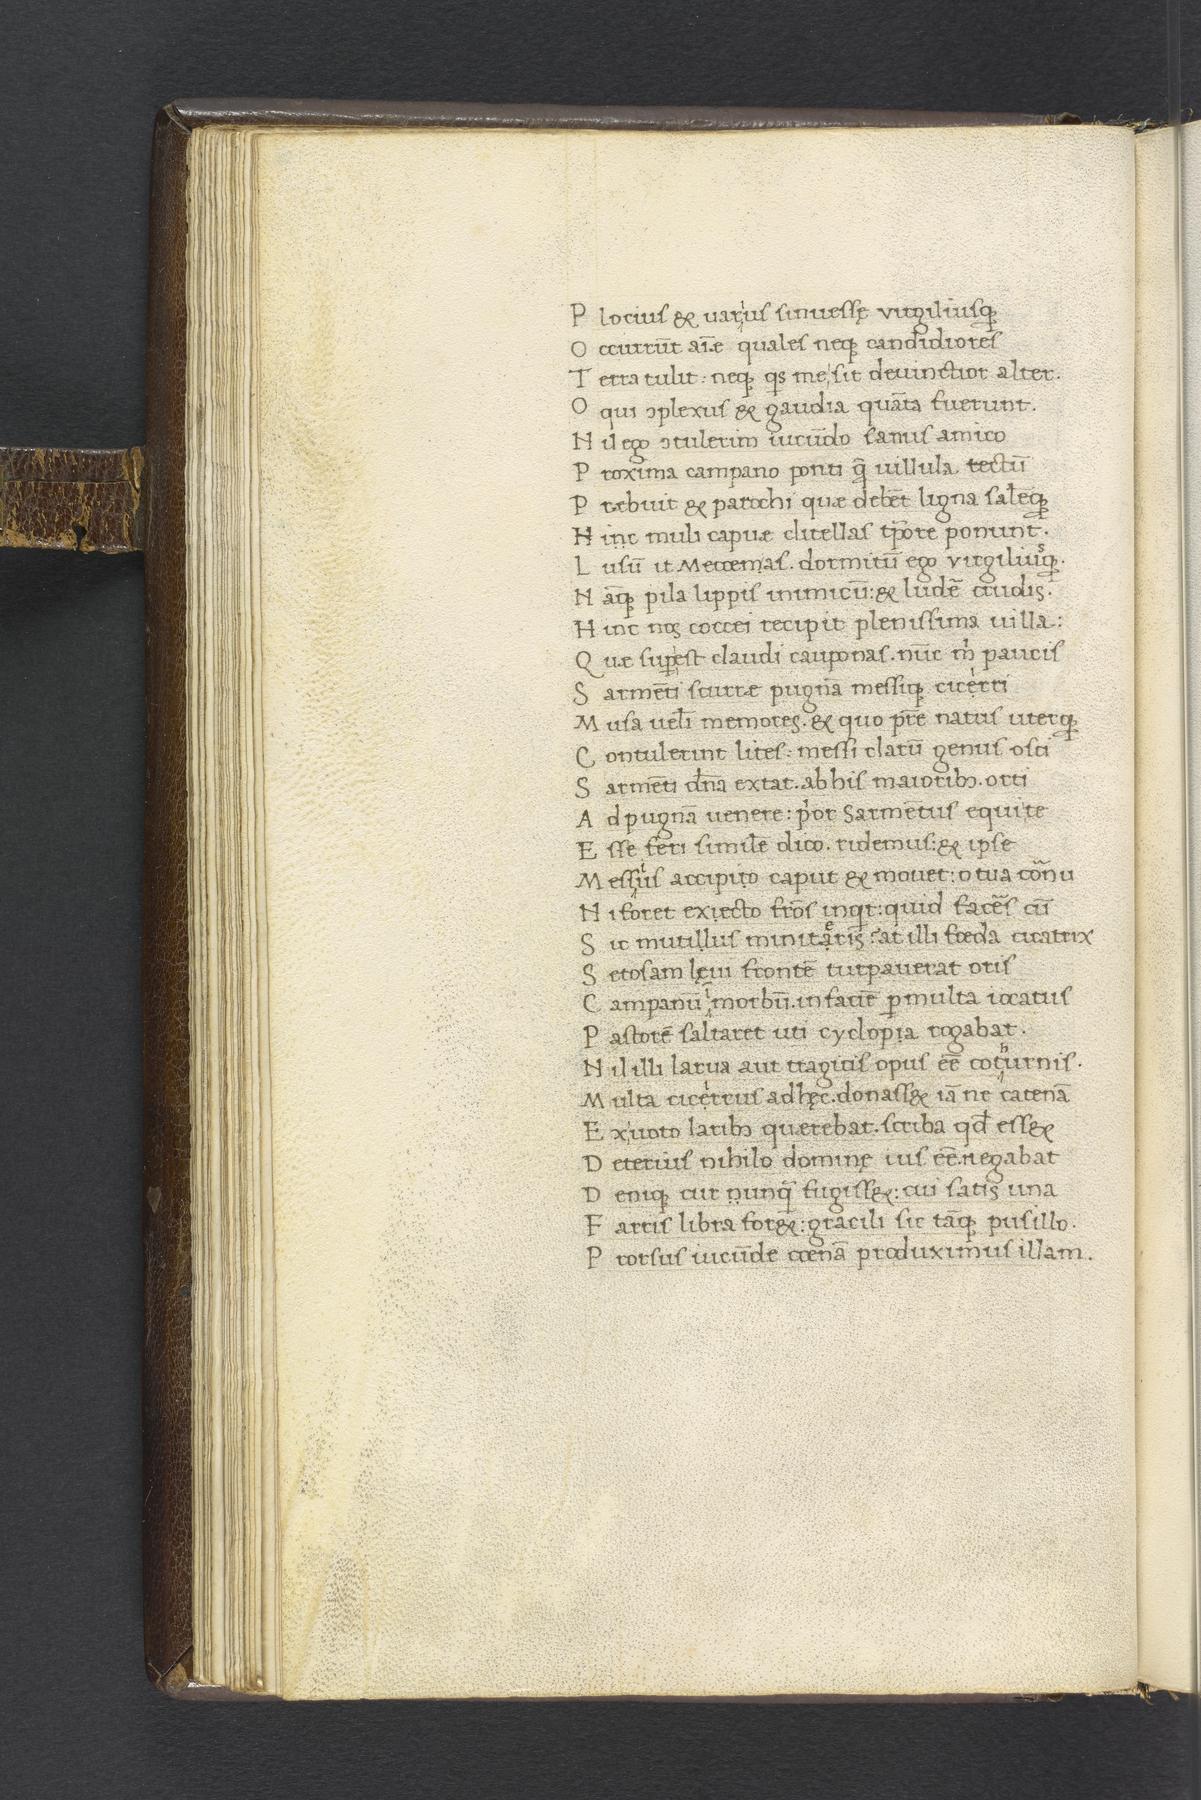 P locius & uarius sinuesse virgiliusq;
O ccurrūt aīæ quales neq; candidiores
T erra tulit: neq; q̄s me sit deuinctior alter.
O qui ↄplexus & gaudia quāta fuerunt.
N il ego ↄtulerim iucūdo sanus amico
P roxima campano ponti q̄ uillula tectū
P ræbuit & parochi quæ debēt ligna salēq;
H inc muli capuæ clitellas tp̄ore ponunt.
L usū it Mecœnas. dormitū ego virgiliusq;.
N āq; pila lippis inimicū: & ludē crudis.
H inc nos coccei recipit plenissima uilla:
Q uæ suꝑest claudi cauponas. nūc m̄ paucis
S armēti scurræ pugnā messiq; cicerri
M usa uelī memores. & quo pr̄e natus uterq;
C ontulerint lites: messi clarū genus osci
S armēti dn̄a extat. ab his maioribꝫ. orti
A d pugnā uenere: pⁱor Sarmētus equite
E sse feri similē dico. ridemus: & ipse
M essius accipito caput & mouet: o tua cornu
N i foret exiecto frōs inqⁱt: quid facēs cū
S ic mutillus minitaris: at illi fœda cicatrix
S etosam lęui frontē turpauerat oris
C ampanū ī morbū. in faciē ꝑmulta iocatus
P astorē saltaret uti cyclopia rogabat.
N il illi larua aut tragicis opus eē cothurnis.
M ulta cicerrus ad hęc. donass& iā ne catenā
E x uoto laribꝫ quærebat. scriba qd̄ ess&
D eterius nihilo dominę ius eē. negabat
D eniq; cur nunq̄ fugiss&: cui satis una
F arris libra for&: gracili sic tāq; pusillo.
P rorsus iucūde cœnā produximus illam.